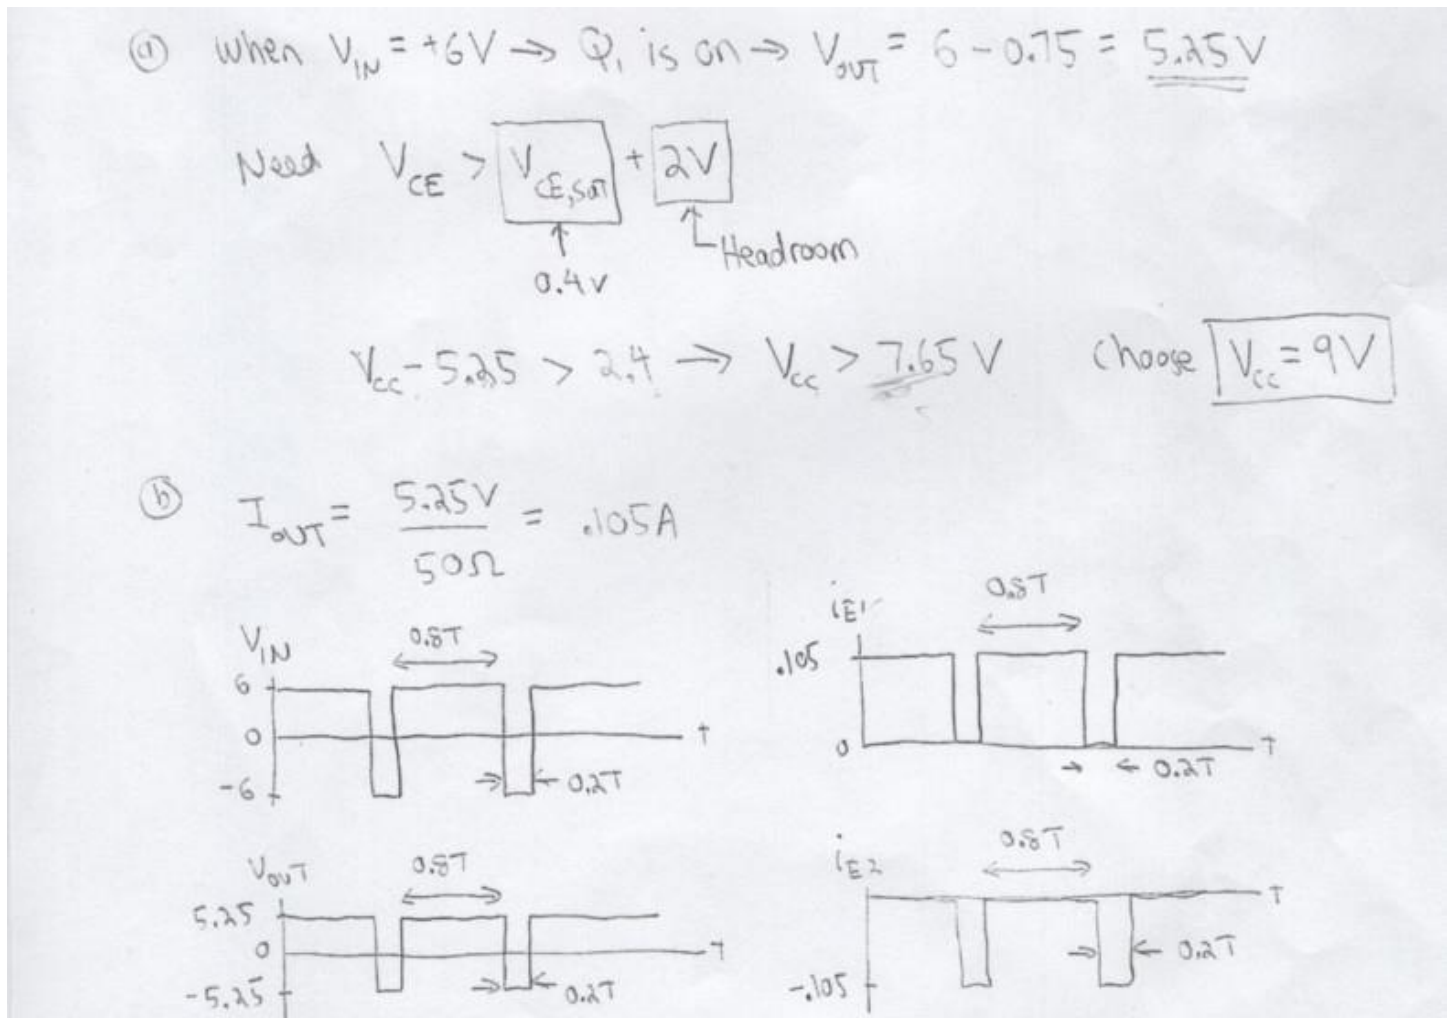 (a) when V_IN = +6V → Q₁ is on → V_OUT = 6 - 0.75 = 5.25V
Need V_CE > V_CE,sat + 2V
Headroom
0.4V
V_CC - 5.25 > 2.4 → V_CC > 7.65 V choose V_CC = 9V
(b) I_OUT = 5.25V / 50Ω = .105A
V_IN
0.8T
6
0
-6
T
0.2T
i_E1
0.8T
.105
0
T
0.2T
V_OUT
0.8T
5.25
0
-5.25
T
0.2T
i_E2
0.8T
T
-.105
0.2T